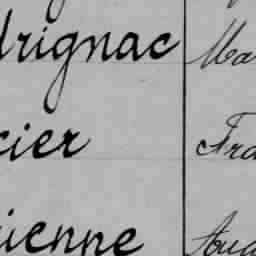 drignac Ma
cier Fra
ienne Aug